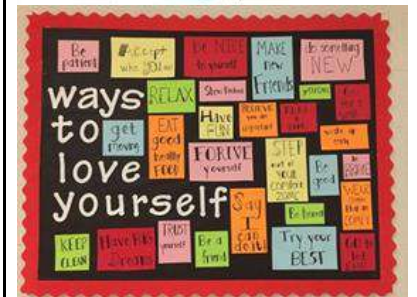 Be
patient
#Accept
who YOU are
Be NICE
to yourself
MAKE
new
Friends
do something
NEW
ways
to
love
yourself
RELAX
Show
get
moving
EAT
good
healthy
FOOD
Have
FUN
BELIEVE
you are
important
FORIVE
yourself
STEP
out of
YOUR
comfort
ZONE
Be
good
Be
BRAVE
WEAR
COMFY
KEEP
CLEAN
Have BIG
Dreams
TRUST
yourself
Be a
friend
Say
I
can
do it!
Be honest
Try your
BEST